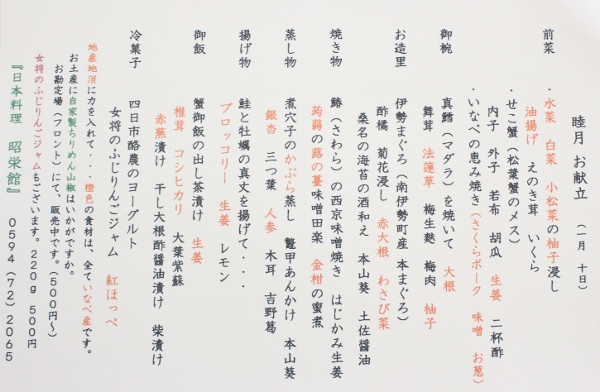 睦月 お献立 (一月 十日)
前菜
・水菜 白菜 小松菜の柚子浸し
油揚げ えのき茸 いくら
・せこ蟹(松葉蟹のメス)
内子 外子 若布 胡瓜 生姜 二杯酢
・いなべの恵み焼き(さくらポーク 味噌 お葱)
御椀
真鱈(マダラ)を焼いて 大根
舞茸 法蓮草 梅生麩 梅肉 柚子
お造里
伊勢まぐろ(南伊勢町産本まぐろ)
酢橘 菊花浸し 赤大根 わさび菜
桑名の海苔の酒和え 本山葵 土佐醤油
焼き物
鰆(さわら)の西京味噌焼き はじかみ生姜
蒟蒻の蕗の薹味噌田楽 金柑の蜜煮
蒸し物
煮穴子のかぶら蒸し 鼈甲あんかけ 本山葵
銀杏 三つ葉 人参 木耳 吉野葛
揚げ物
鮭と牡蠣の真丈を揚げて・・・
ブロッコリー 生姜 レモン
御飯
蟹御飯の出し茶漬け 生姜
椎茸 コシヒカリ 大葉紫蘇
赤蕪漬け 干し大根酢醤油漬け 柴漬け
冷菓子
四日市酪農のヨーグルト
女将のふじりんごジャム 紅ほっぺ
地産地消に力を入れて・・・橙色の食材は、全ていなべ産です。
お土産に自家製ちりめん山椒はいかがですか。
お勘定場(フロント)にて、販売中です。(500円~)
女将のふじりんごジャムもございます。220g 500円
『日本料理 昭栄館』 0594(72)2065